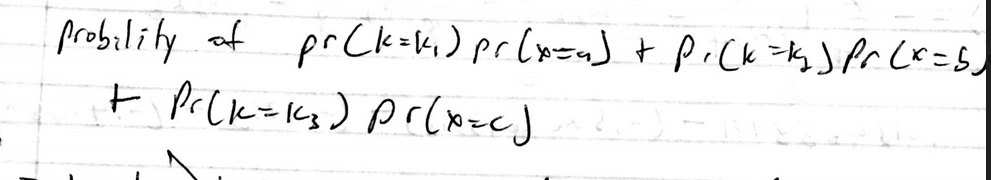 Probility of pr(k=k₁) pr(x=a) + Pr(k=k₂) Pr(x=b)
+ Pr(k=k₃) pr(x=c)